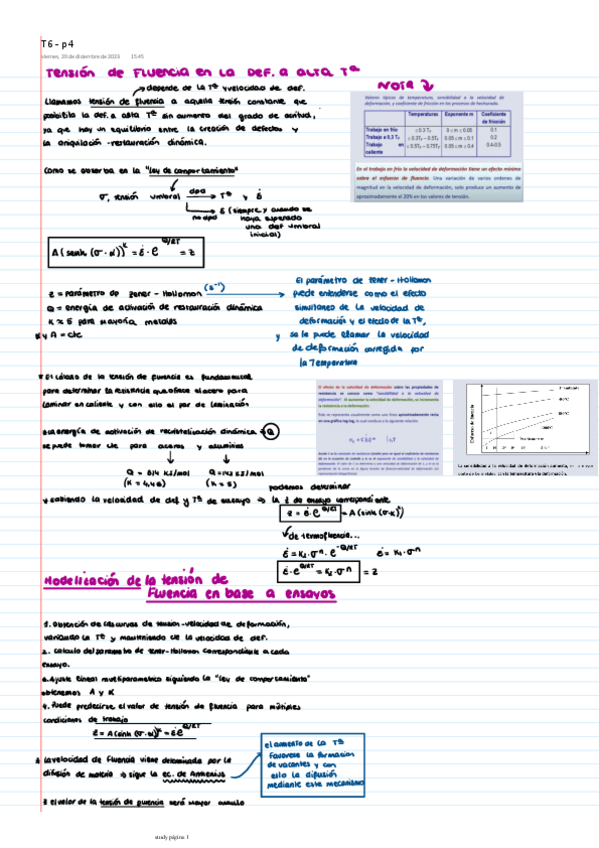 T6 - p4
viernes, 29 de diciembre de 2023 15:45
TENSIÓN DE FLUENCIA EN LA DEF. A ALTA Tª
NOTA
depende de la Tª y velocidad de def.
Llamamos tensión de fluencia a aquella tensión constante que
posibilita la def. a alta Tª sin aumento del grado de acritud,
ya que hay un equilibrio entre la creación de defectos y
la aniquilación-restauración dinámica.
Como se observa en la "ley de comportamiento"
σ, tensión umbral dpd Tª y ε̇
no dpd ε (siempre y cuando se
haya superado
una def umbral
inicial)
Valores típicos de temperatura, sensibilidad a la velocidad de
deformación, y coeficiente de fricción en los procesos de hechurado.
Temperaturas Exponente m Coeficiente
de fricción
Trabajo en frío ≤ 0.3 Tf 0 ≤ m ≤ 0.05 0.1
Trabajo a 0.3 Tf 0.05 ≤ m ≤ 0.05 0.2
Trabajo en
caliente 0.05 ≤ m ≤ 0.4 0.4-0.5
En el trabajo en frío la velocidad de deformación tiene un efecto mínimo
sobre el esfuerzo de fluencia. Una variación de varios ordenes de
magnitud en la velocidad de deformación, solo produce un aumento de
aproximadamente el 20% en los valores de tensión.
A (senh (σ·α))^k = ε̇ · e^Q/RT = z
z = parámetro de Zener-Hollomon (s⁻¹)
Q = energía de activación de restauración dinámica
K ≈ 5 para mayoría metales
α y A = cte
El parámetro de Zener-Hollomon
puede entenderse como el efecto
simultáneo de la velocidad de
deformación y el efecto de la Tª,
y se le puede llamar la velocidad
de deformación corregida por
la Temperatura
* El cálculo de la tensión de fluencia es fundamental
para determinar la resistencia que ofrece el acero para
laminar en caliente y con ello el par de laminación
El efecto de la velocidad de deformación sobre las propiedades de
resistencia es conoce como "sensibilidad a la velocidad de
deformación". Al aumentar la velocidad de deformación, se incrementa
la resistencia a la deformación.
Esfuerzo de fluencia
La sensibilidad a la velocidad de deformación aumenta,
con la temperatura de deformación.
La energía de activación de recristalización dinámica = Q
se puede tomar cte para aceros y aluminios
(K = 5)
podemos determinar
y sabiendo la velocidad de def y Tª de ensayo ⇒ la z de ensayo correspondiente
z = ε̇ · e^Q/RT = A (sinh (σ·α))^k
de termofluencia...
ε̇ = K₁ · σⁿ · e^-Q/RT ε̇ = K₁ · σⁿ
ε̇ · e^Q/RT = K₁ · σⁿ = z
Modelización de la tensión de
fluencia en base a ensayos
1. Obtención de las curvas de tensión-velocidad de deformación,
variando la Tª y manteniendo cte la velocidad de def.
2. Cálculo del parámetro de Zener-Hollomon correspondiente a cada
ensayo.
3. Ajuste lineal multiparamétrico siguiendo la "ley de comportamiento"
obtenemos A y K
4. Puede predecirse el valor de tensión de fluencia para múltiples
condiciones de trabajo
z = A (sinh (σ·α))^k = ε̇ e^Q/RT
* La velocidad de fluencia viene determinada por la
difusión de materia ⇒ sigue la ec. de Arrhenius
el aumento de la Tª
favorece la formación
de vacantes y con
ello la difusión
mediante este mecanismo
* el valor de la tensión de fluencia será mayor cuando